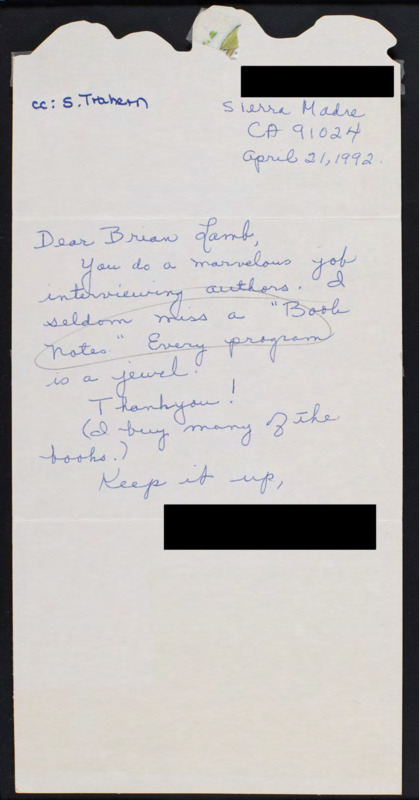 cc: S. Trahern
Sierra Madre
CA 91024
April 21, 1992.
Dear Brian Lamb,
You do a marvelous job
interviewing authors. I
seldom miss a "Book
Notes." Every program
is a jewel!
Thankyou!
(I buy many of the
books.)
Keep it up,